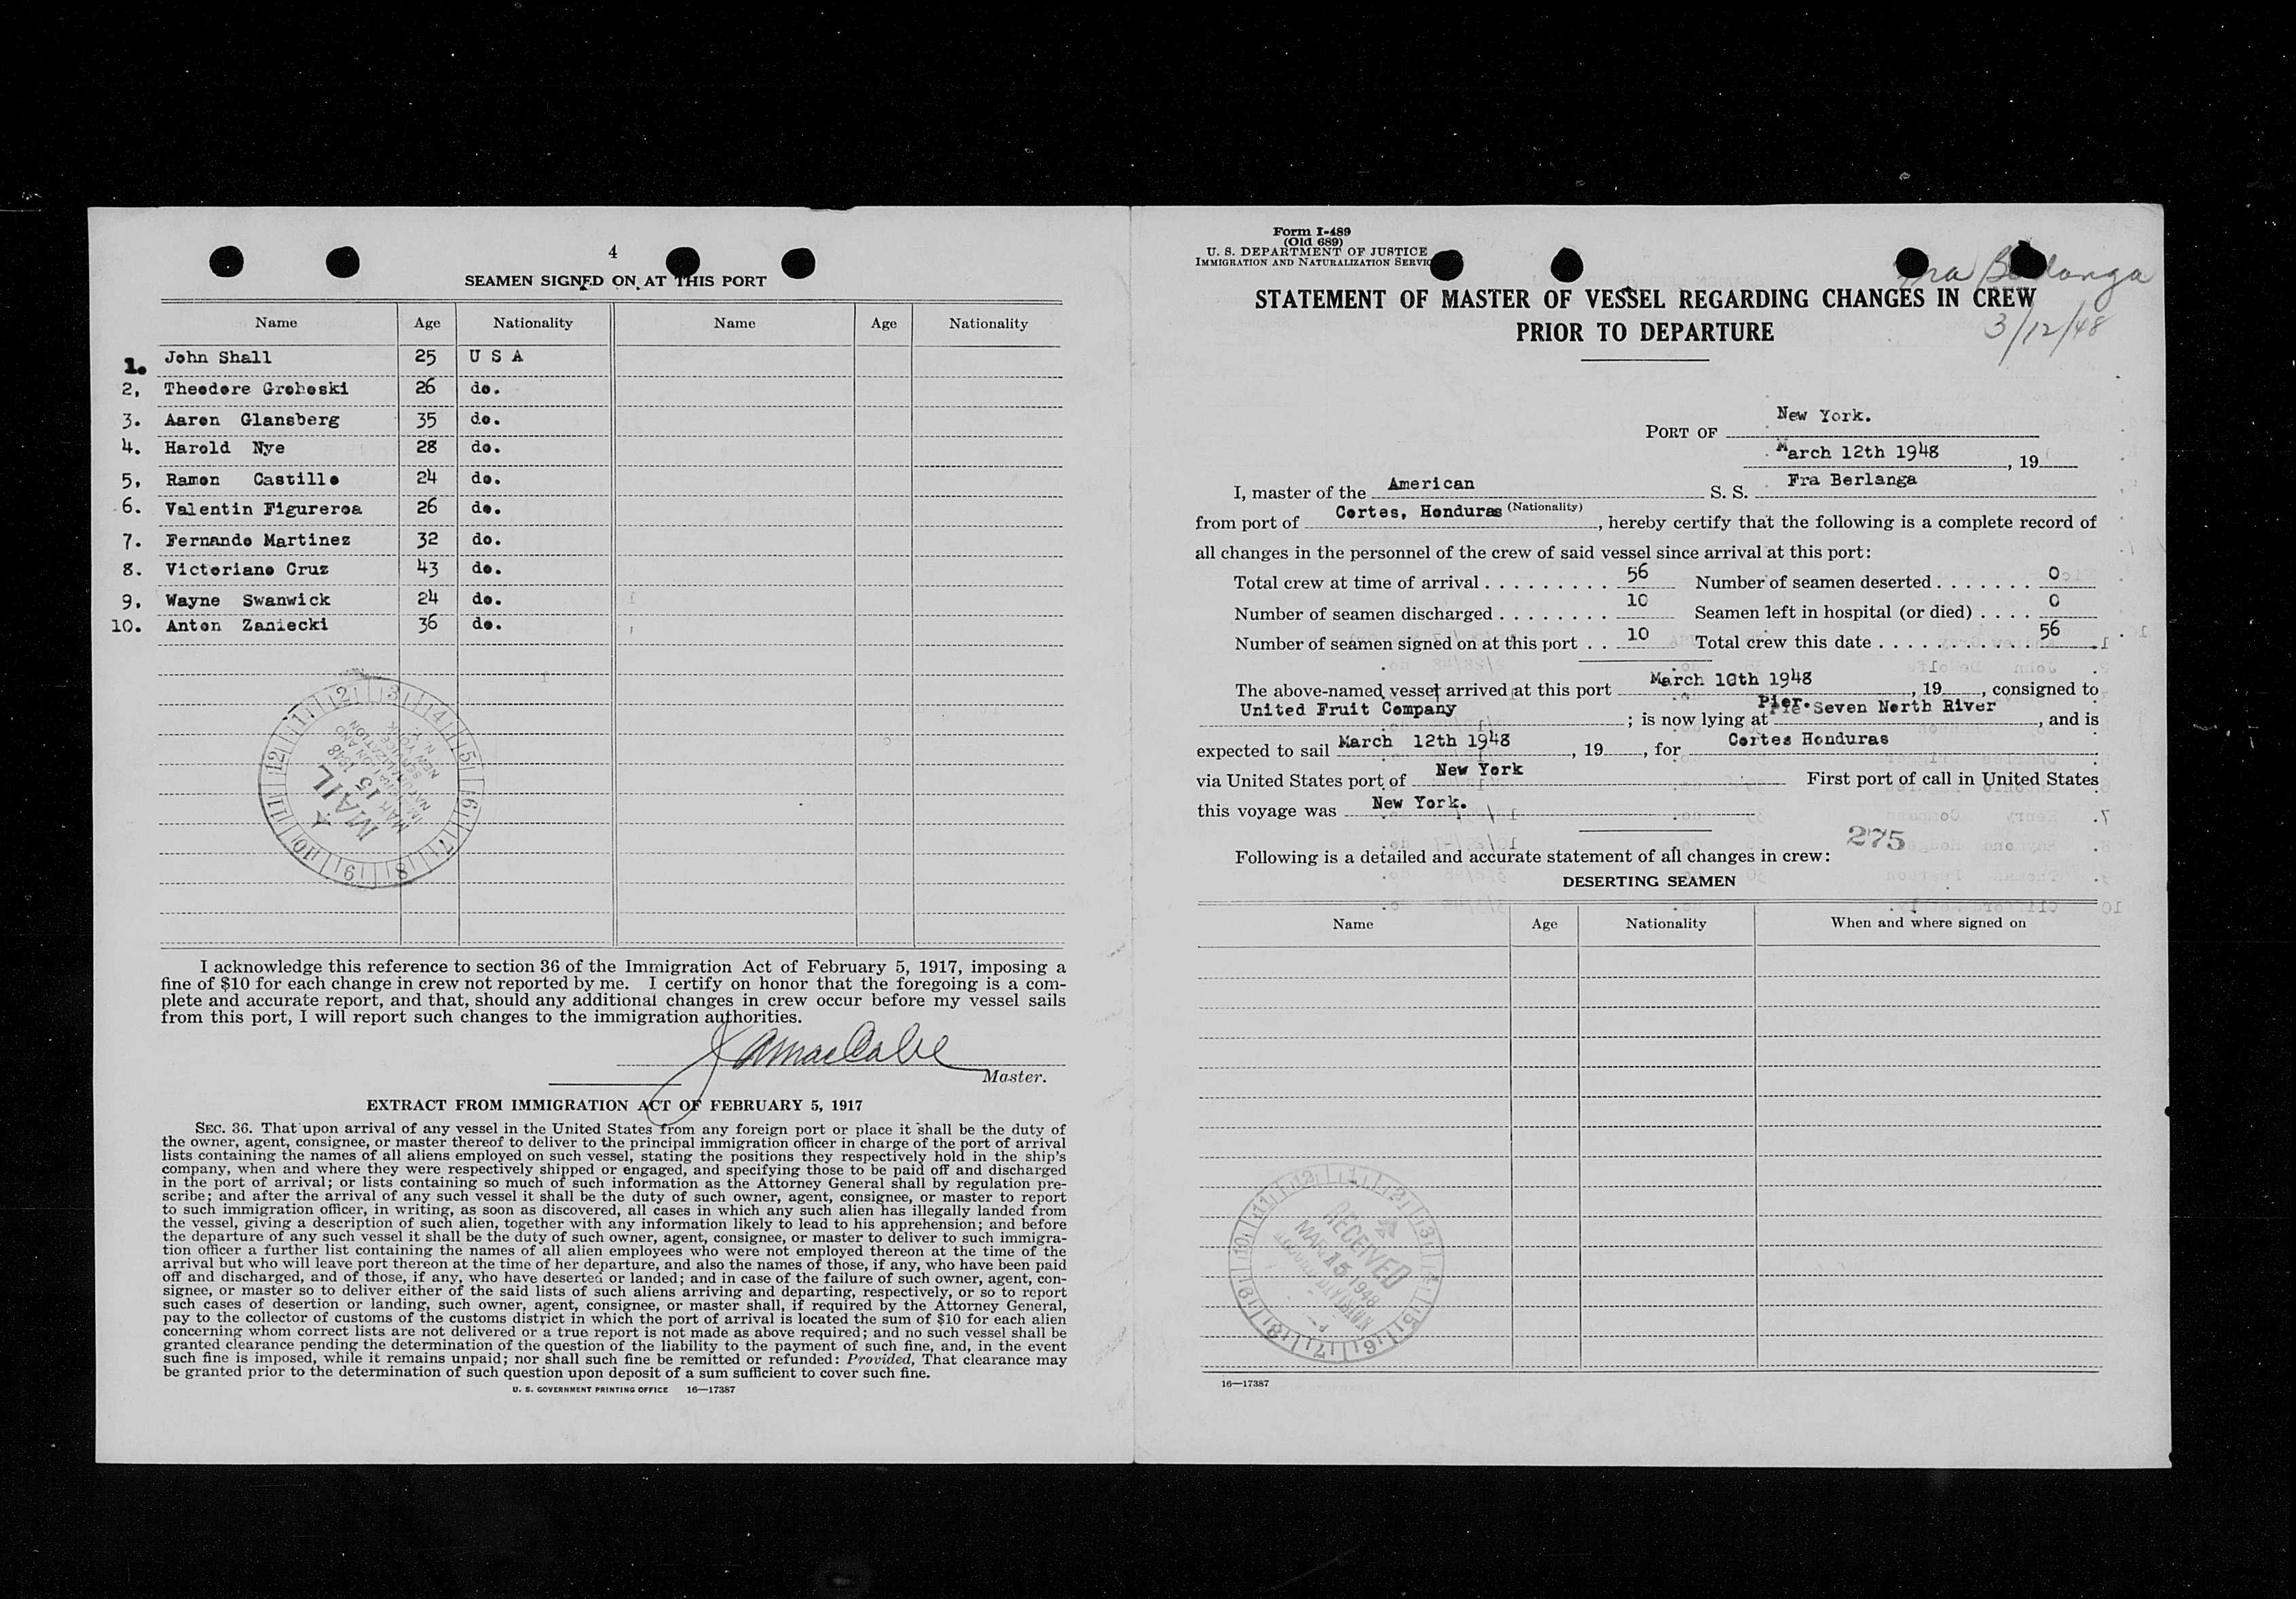 4
SEAMEN SIGNED ON AT THIS PORT
Name Age Nationality Name Age Nationality
1. John Shall 25 U S A
2, Theodore Groboski 26 do.
3. Aaron Glansberg 35 do.
4. Harold Nye 28 do.
5, Ramon Castillo 24 do.
6. Valentin Figureroa 26 do.
7. Fernando Martinez 32 do.
8. Victoriano Cruz 43 do.
9. Wayne Swanwick 24 do.
10. Anton Zaniecki 36 do.
MAIL
MAR 15 1948
IMMIGRATION AND
NATURALIZATION
SERVICE
NEW YORK, N. Y.
I acknowledge this reference to section 36 of the Immigration Act of February 5, 1917, imposing a
fine of $10 for each change in crew not reported by me. I certify on honor that the foregoing is a com-
plete and accurate report, and that, should any additional changes in crew occur before my vessel sails
from this port, I will report such changes to the immigration authorities.
Master.
EXTRACT FROM IMMIGRATION ACT OF FEBRUARY 5, 1917
SEC. 36. That upon arrival of any vessel in the United States from any foreign port or place it shall be the duty of
the owner, agent, consignee, or master thereof to deliver to the principal immigration officer in charge of the port of arrival
lists containing the names of all aliens employed on such vessel, stating the positions they respectively hold in the ship's
company, when and where they were respectively shipped or engaged, and specifying those to be paid off and discharged
in the port of arrival; or lists containing so much of such information as the Attorney General shall by regulation pre-
scribe; and after the arrival of any such vessel it shall be the duty of such owner, agent, consignee, or master to report
to such immigration officer, in writing, as soon as discovered, all cases in which any such alien has illegally landed from
the vessel, giving a description of such alien, together with any information likely to lead to his apprehension; and before
the departure of any such vessel it shall be the duty of such owner, agent, consignee, or master to deliver to such immigra-
tion officer a further list containing the names of all alien employees who were not employed thereon at the time of the
arrival but who will leave port thereon at the time of her departure, and also the names of those, if any, who have been paid
off and discharged, and of those, if any, who have deserted or landed; and in case of the failure of such owner, agent, con-
signee, or master so to deliver either of the said lists of such aliens arriving and departing, respectively, or so to report
such cases of desertion or landing, such owner, agent, consignee, or master shall, if required by the Attorney General,
pay to the collector of customs of the customs district in which the port of arrival is located the sum of $10 for each alien
concerning whom correct lists are not delivered or a true report is not made as above required; and no such vessel shall be
granted clearance pending the determination of the question of the liability to the payment of such fine, and, in the event
such fine is imposed, while it remains unpaid; nor shall such fine be remitted or refunded: Provided, That clearance may
be granted prior to the determination of such question upon deposit of a sum sufficient to cover such fine.
U. S. GOVERNMENT PRINTING OFFICE 16—17387
Form I-489
(Old 689)
U. S. DEPARTMENT OF JUSTICE
IMMIGRATION AND NATURALIZATION SERVIC
Fra Berlanga
3/12/48
STATEMENT OF MASTER OF VESSEL REGARDING CHANGES IN CREW
PRIOR TO DEPARTURE
PORT OF New York.
March 12th 1948, 19
I, master of the American S. S. Fra Berlanga
(Nationality)
from port of Cortes, Honduras, hereby certify that the following is a complete record of
all changes in the personnel of the crew of said vessel since arrival at this port:
Total crew at time of arrival . . . . . . . . . 56 Number of seamen deserted . . . . . . . 0
Number of seamen discharged . . . . . . . . 10 Seamen left in hospital (or died) . . . . 0
Number of seamen signed on at this port . . 10 Total crew this date . . . . . . . . . . . . 56
The above-named vessel arrived at this port March 10th 1948, 19, consigned to
United Fruit Company; is now lying at Pier. Seven North River, and is
expected to sail March 12th 1948, 19, for Cortes Honduras
via United States port of New York First port of call in United States
this voyage was New York.
275
Following is a detailed and accurate statement of all changes in crew:
DESERTING SEAMEN
Name Age Nationality When and where signed on
RECEIVED
MAR 15 1948
DIVISION
16—17387